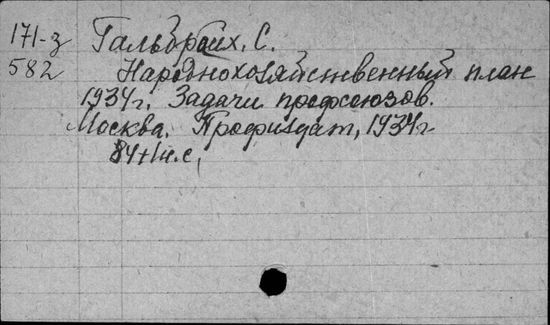 171-з Гальбрайх, С.
582 Народнохозяйственный план
1934г. Задачи профсоюзов.
Москва. Профиздат, 1934г
84+1н.с,